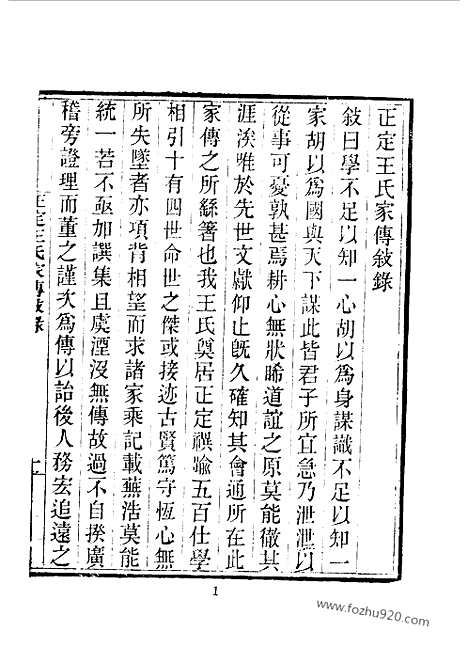 正定王氏家傳敍錄
敍曰學不足以知一心胡以為身謀識不足以知一
家胡以為國與天下謀此皆君子所宜急乃泄泄以
從事可憂孰甚焉耕心無狀晞道誼之原莫能徹其
涯涘唯於先世文獻仰止旣久確知其會通所在此
家傳之所繇箸也我王氏奠居正定禩踰五百仕學
相引十有四世命世之傑或接迹古賢篤守恆心無
所失墜者亦項背相望而求諸家乘記載蕪浩莫能
統一若不亟加譔集且虞湮沒無傳故過不自揆廣
稽旁證理而董之謹次為傳以詒後人務宏追遠之
正定王氏家傳敍錄
一
1
www.fozhu920.com